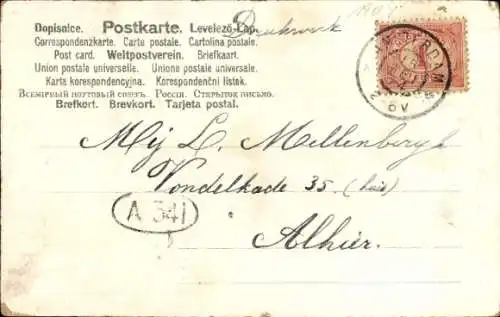 Dopisnice. Postkarte. Levelező-Lap.
Drukwerk
Correspondenzkarte. Carte postale. Cartolina postale.
Post card. Weltpostverein. Briefkaart.
Union postale universelle. Unione postale universale.
Karta korespondencyjna. Korespondenční listek.
Всемірный почтовый союзъ. Россія. Открытое письмо.
Brefkort. Brevkort. Tarjeta postal.
AMSTERDAM
Mej L. Mellenbergh
Vondelkade 35 (huis)
A 341
Alhier.